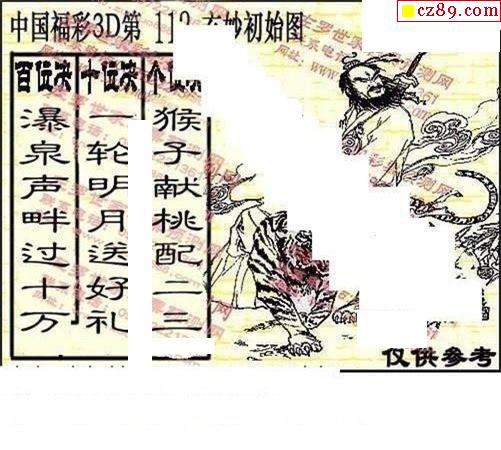 cz89.com
中国福彩3D第 11 妙初始图
百位决
瀑泉声畔过十万
十位决
一轮明月送好礼
个
猴子献桃配二三
仅供参考